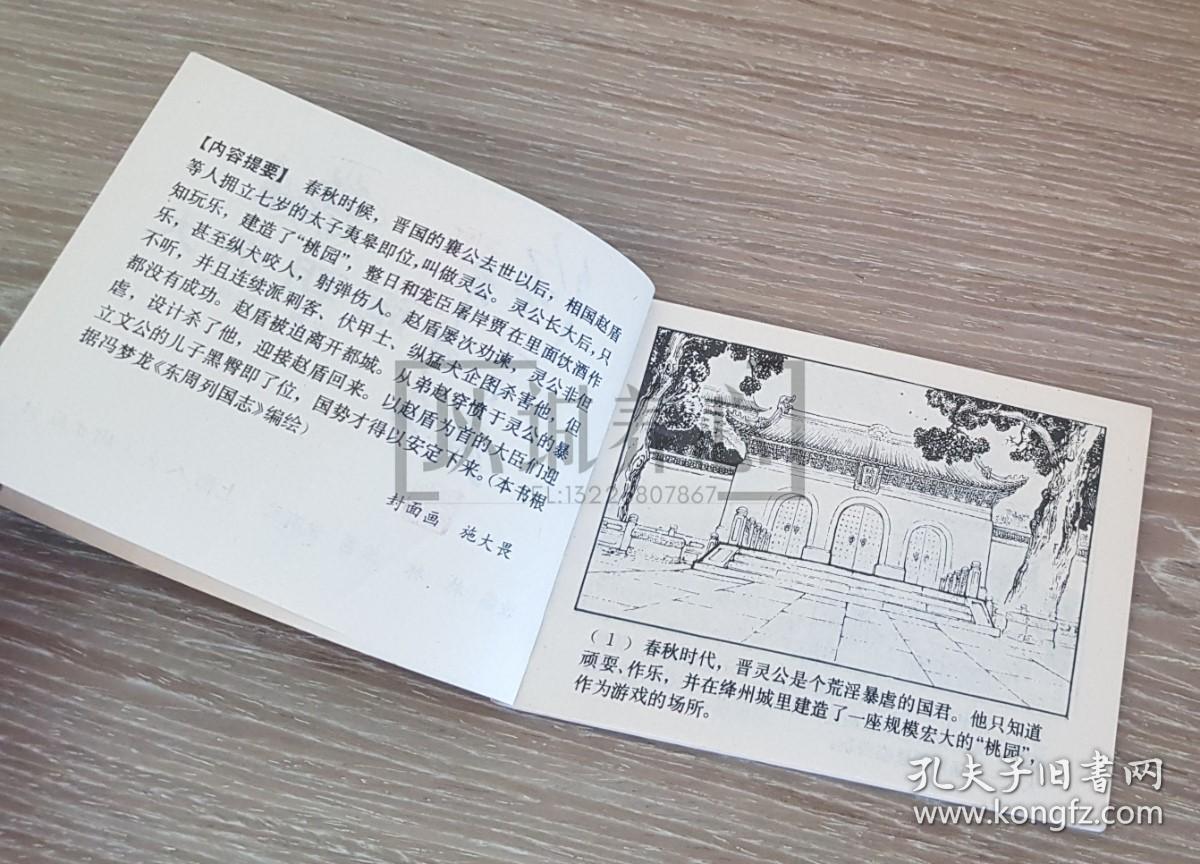 【内容提要】 春秋时候，晋国的襄公去世以后，相国赵盾
等人拥立七岁的太子夷皋即位，叫做灵公。灵公长大后，只
知玩乐，建造了“桃园”，整日和宠臣屠岸贾在里面饮酒作
乐，甚至纵犬咬人，射弹伤人。赵盾屡次劝谏，灵公非但
不听，并且连续派刺客、伏甲士、纵猛犬企图杀害他，但
都没有成功。赵盾被迫离开都城。从弟赵穿愤于灵公的暴
虐，设计杀了他，迎接赵盾回来。以赵盾为首的大臣们迎
立文公的儿子黑臀即了位，国势才得以安定下来。（本书根
据冯梦龙《东周列国志》编绘）
封面画 施大畏
（1）春秋时代，晋灵公是个荒淫暴虐的国君。他只知道
顽耍、作乐，并在绛州城里建造了一座规模宏大的“桃园”，
作为游戏的场所。
孔夫子旧书网
www.kongfz.com